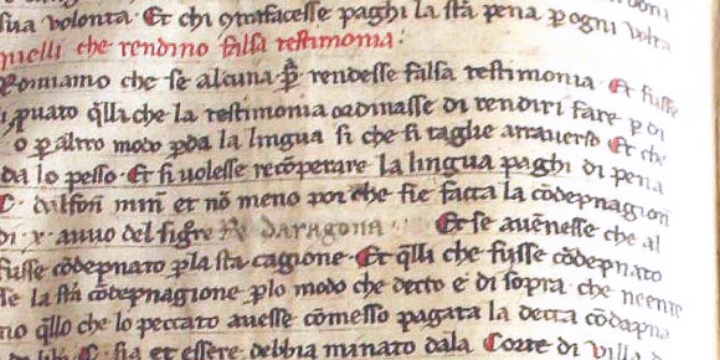 sua volonta · Et chi gtrafacesse paghi la sta pena p ogni volta
quelli che rendino falsa testimonia:
Poniamo che se alcuna · p̄ · rendesse falsa testimonia · Et fusse
puato q̄lli che la testimonia oadinasse di rendiri fare p di
o p altro modo pda la lingua si che si taglie atrauerso Et che
da lo pesso · Et si uolesse recōperare la lingua paghi di pena
C · dalfon̄ min̄ et nō meno poi che fie facta la cōdepnagion̄
di · x · anno del siḡre Re daragona Et se auēnesse che al
fusse cōdepnato p la sta cagione · Et q̄lli che fusse cōdepnato
se la sta cōdepnagione p lo modo che decto e di sopra · che neente
no q̄llo che lo peccato auesse cōmesso pagata la decta cōdapna
C · sia et essere debbia minato dala Corte di Villa